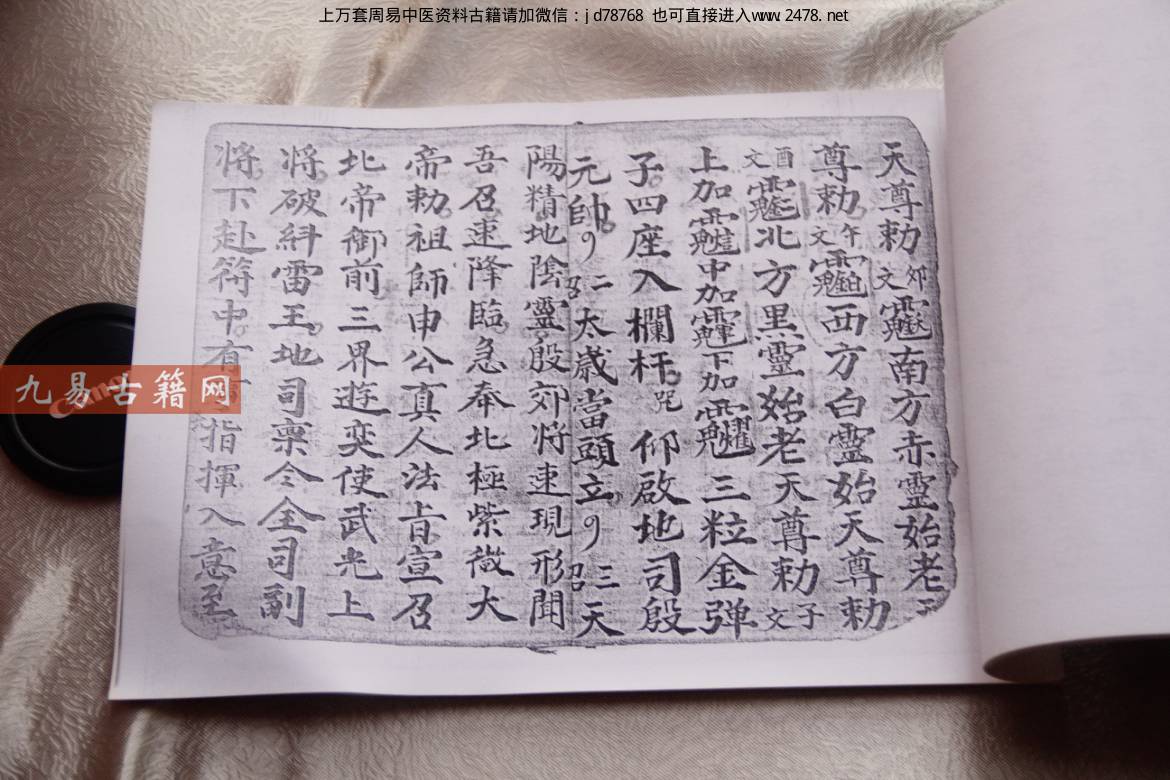 上万套周易中医资料古籍请加微信：jd78768 也可直接进入www.2478.net
天尊勅 文 南方赤靈始老天
尊勅 午文 西方白靈始天尊勅
酉文 北方黑靈始老天尊勅 子文
上加 中加 下加 三粒金弹
子四座入欄杆咒 仰啟地司殷
元帥 二召 太歳當頭立 三召 天
陽精地陰靈殷郊将速現形聞
吾召速降臨急奉北極紫微大
帝勅祖師申公真人法旨宣召
北帝御前三界遊奕使武光上
将破糾雷王地司稟令全司副
将下赴符中有 指揮入意至
九易古籍网